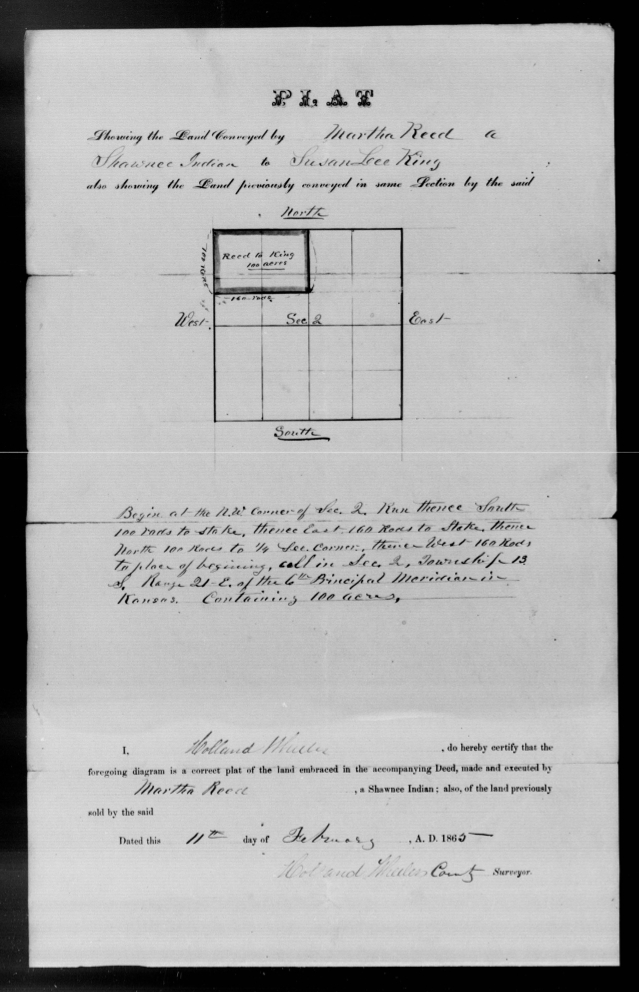 PLAT
Showing the Land Conveyed by Martha Reed a
Shawnee Indian to Susan Lee King ;
also showing the Land previously conveyed in same Section by the said
North
Reed to King
100 acres
100 rods
160 rods
West
Sec. 2
East
South
Begin at the N.W. Corner of Sec. 2, Run thence South
100 rods to stake, thence East 160 Rods to Stake, thence
North 100 Rods to 1/4 Sec. Corner, thence West 160 Rods
to place of beginning, all in Sec. 2, Township 13
S, Range 21 E. of the 6th Principal Meridian in
Kansas. Containing 100 acres,
I, Holland Wheeler , do hereby certify that the
foregoing diagram is a correct plat of the land embraced in the accompanying Deed, made and executed by
Martha Reed , a Shawnee Indian ; also, of the land previously
sold by the said
Dated this 11th day of February , A. D. 1865
Holland Wheeler County Surveyor.